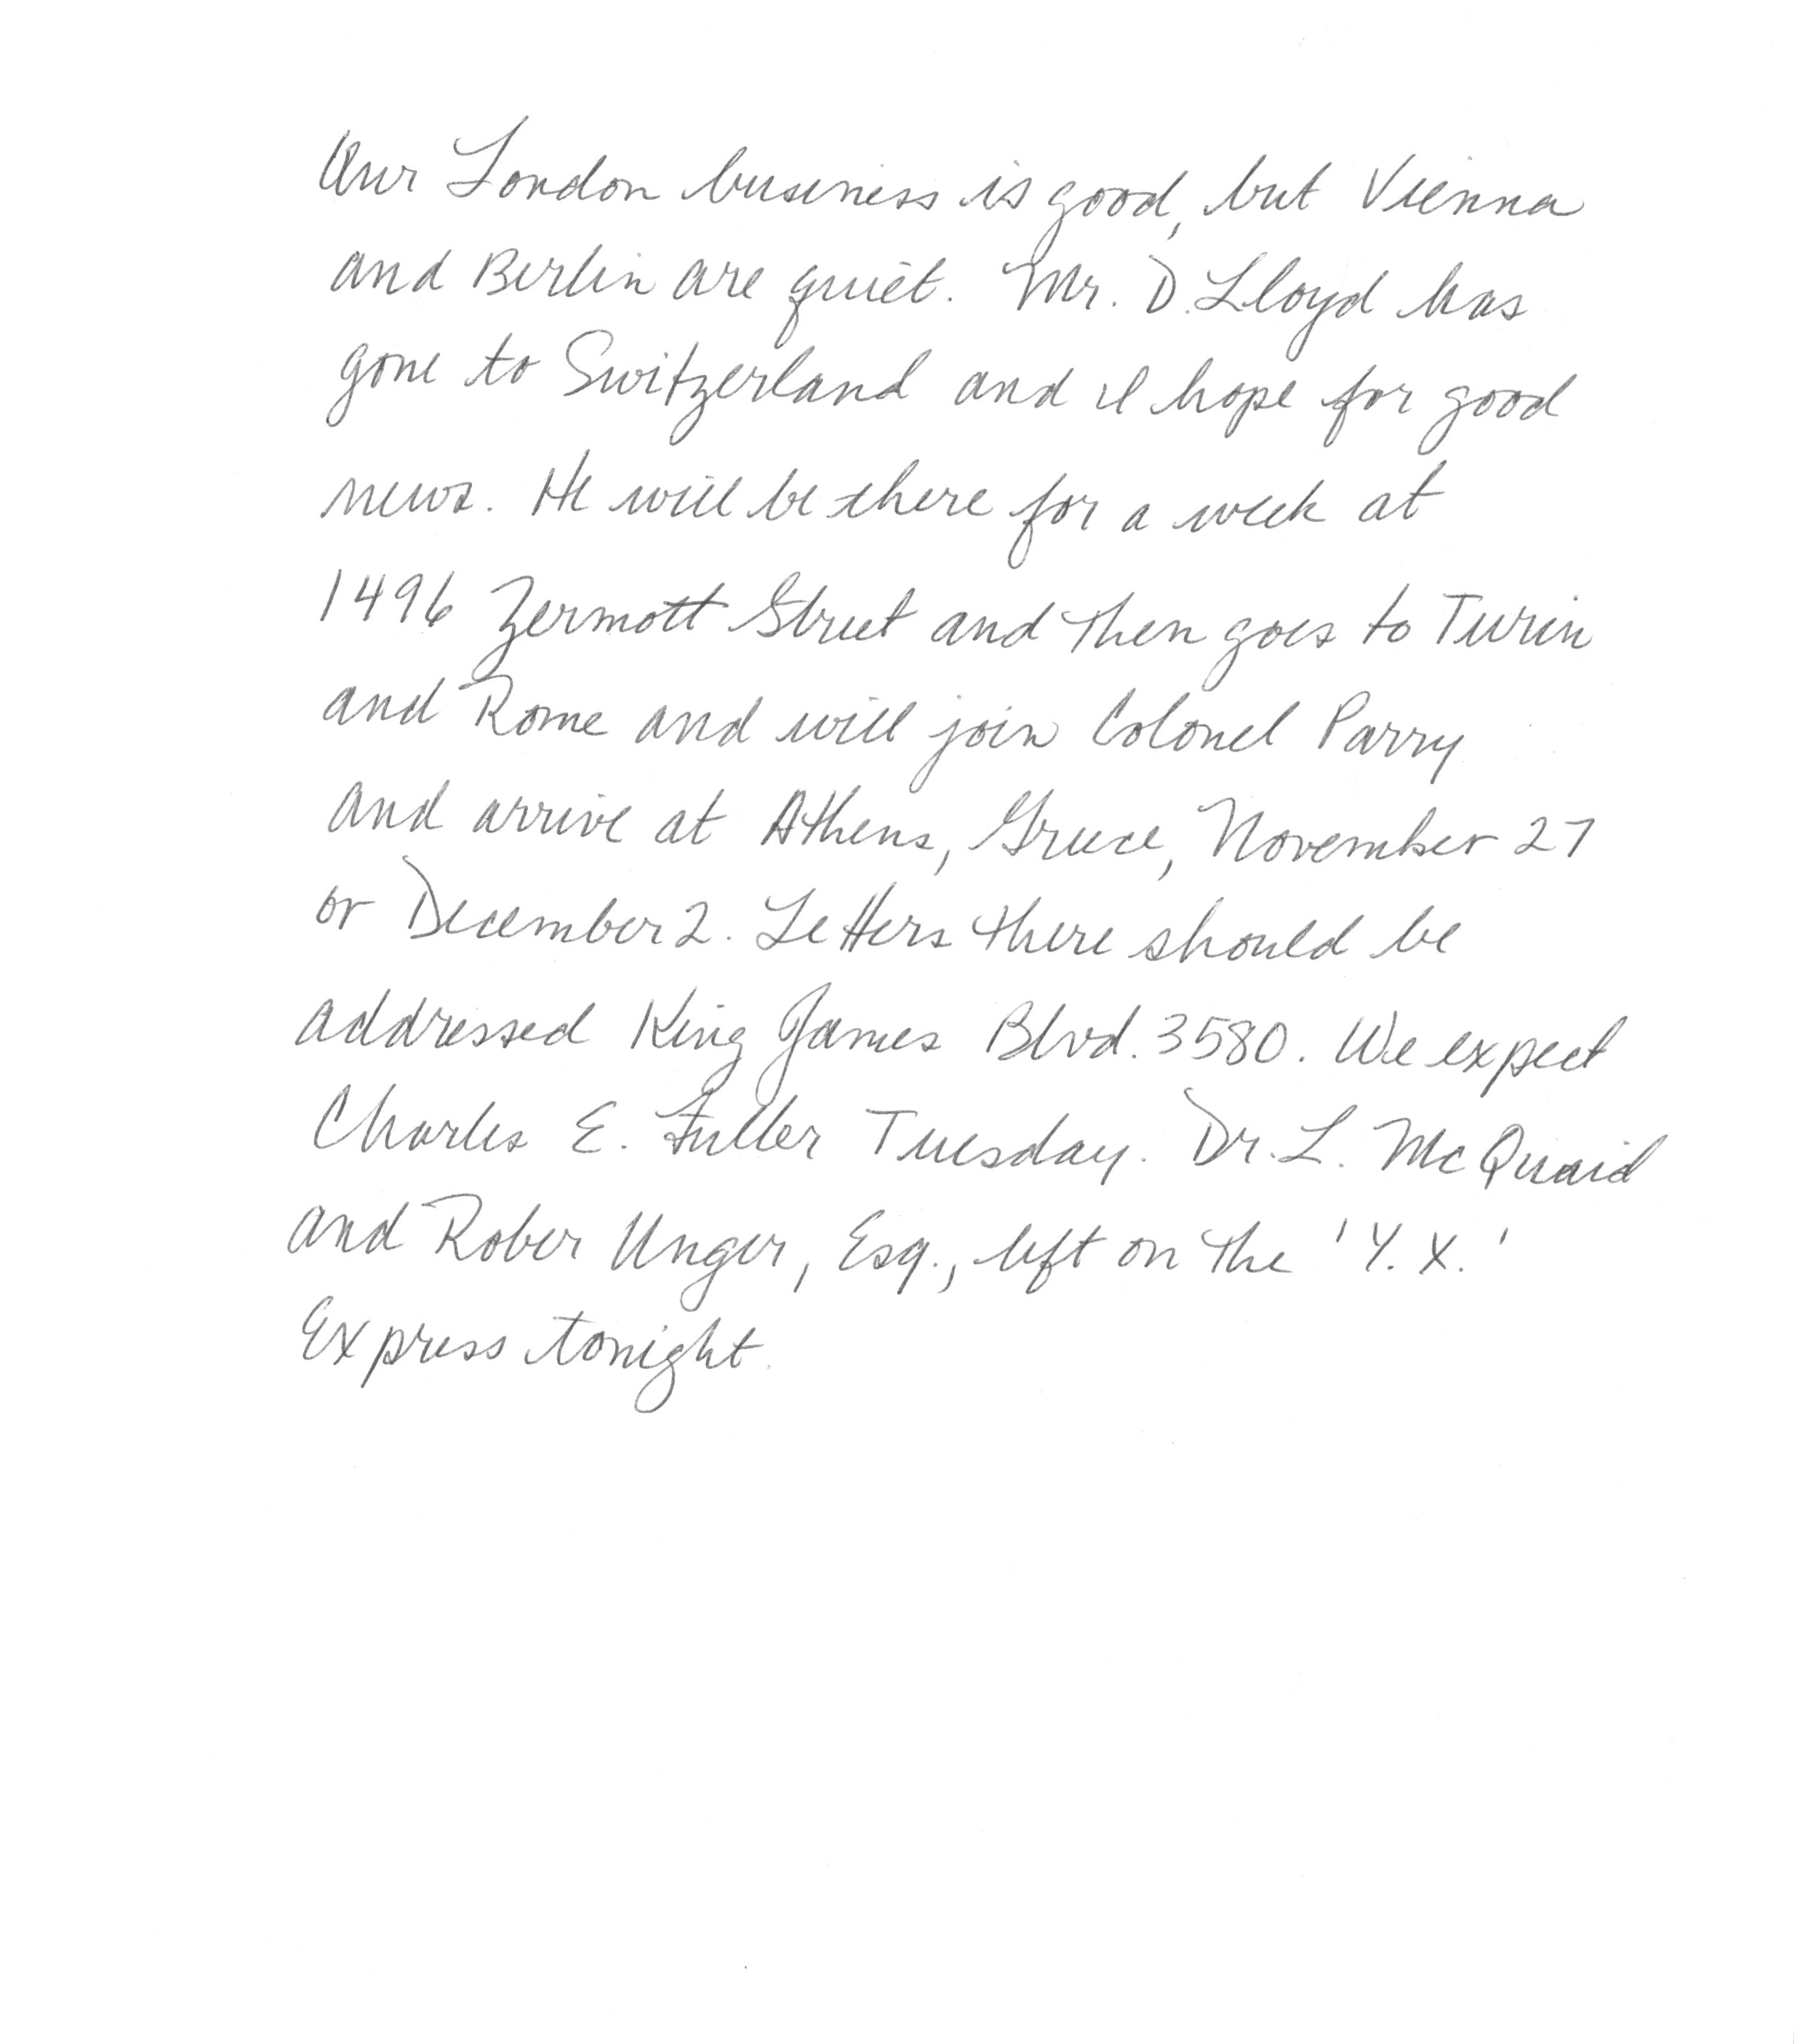 Our London business is good, but Vienna
and Berlin are quiet. Mr. D. Lloyd has
gone to Switzerland and I hope for good
news. He will be there for a week at
1496 Zermott Street and then goes to Turin
and Rome and will join Colonel Parry
and arrive at Athens, Greece, November 27
or December 2. Letters there should be
addressed King James Blvd. 3580. We expect
Charles E. Fuller Tuesday. Dr. L. McQuaid
and Rober Unger, Esq., left on the 'Y. X.'
Express tonight.